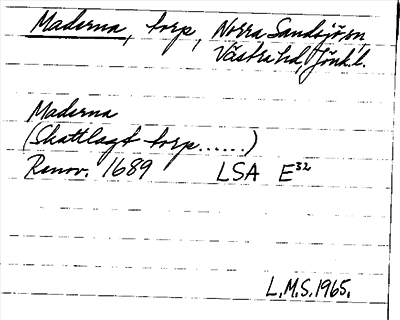 Maderna, torp, Norra Sandsjö sn
Västra hd, Jönk.l.
Maderna
(Skattlagt torp......)
Renov. 1689 LSA E³²
L.M.S. 1965.